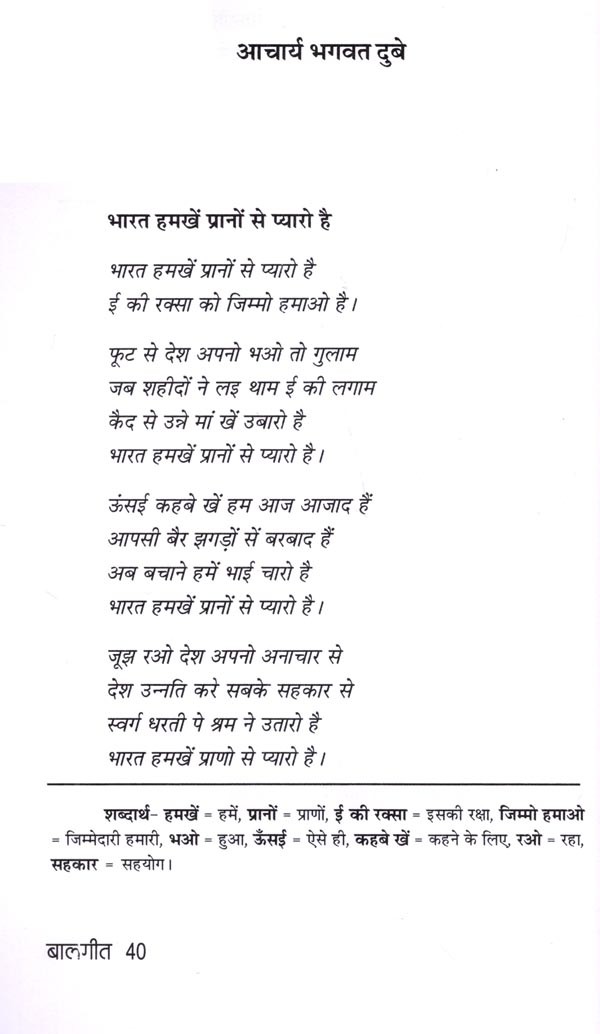 आचार्य भगवत दुबे
भारत हमखें प्रानों से प्यारो है
भारत हमखें प्रानों से प्यारो है
ई की रक्सा को जिम्मो हमाओ है।
फूट से देश अपनो भओ तो गुलाम
जब शहीदों ने लइ थाम ई की लगाम
कैद से उन्ने मां खें उबारो है
भारत हमखें प्रानों से प्यारो है।
ऊंसई कहबे खें हम आज आजाद हैं
आपसी बैर झगड़ों सें बरबाद हैं
अब बचाने हमें भाई चारो है
भारत हमखें प्रानों से प्यारो है।
जूझ रओ देश अपनो अनाचार से
देश उन्नति करे सबके सहकार से
स्वर्ग धरती पे श्रम ने उतारो है
भारत हमखें प्राणो से प्यारो है।
शब्दार्थ- हमखें = हमें, प्रानों = प्राणों, ई की रक्सा = इसकी रक्षा, जिम्मो हमाओ
= जिम्मेदारी हमारी, भओ = हुआ, ऊँसई = ऐसे ही, कहबे खें = कहने के लिए, रओ = रहा,
सहकार = सहयोग।
बालगीत 40